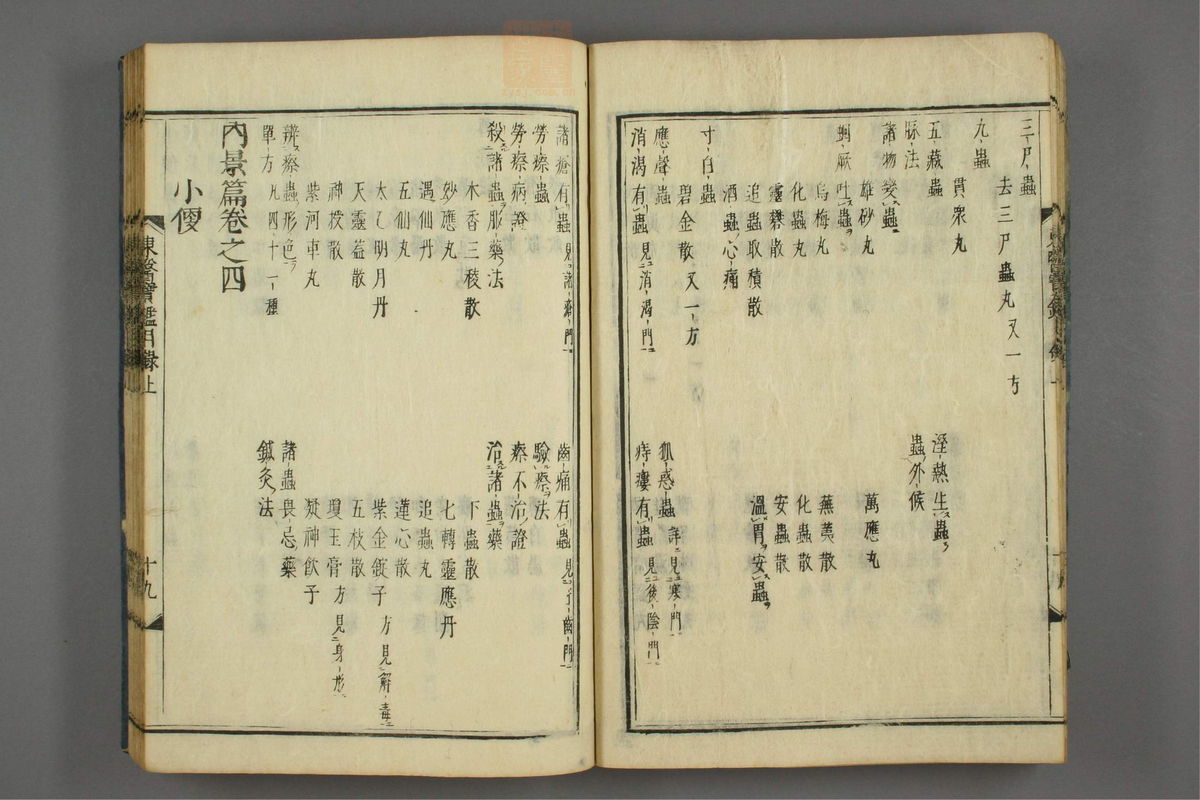 三尸蟲
去三尸蟲丸又一方
九蟲
貫衆丸
五藏蟲
濕熱生蟲
脉法
蟲外候
諸物變蟲
雄砂丸
萬應丸
蚘厥吐蟲
烏梅丸
蕪荑散
化蟲丸
化蟲散
靈礬散
安蟲散
追蟲取積散
溫胃安蟲
酒蟲心痛
寸白蟲
碧金散又一方
應聲蟲
狐惑蟲 詳見寒門
消渴有蟲 見消渴門
痔瘻有蟲 見後陰門
諸瘡有蟲 見諸瘡門
齒痛有蟲 見牙齒門
勞瘵蟲
驗瘵法
勞瘵病證
瘵不治證
殺諸蟲服藥法
治諸蟲藥
木香三稜散
下蟲散
妙應丸
七轉靈應丹
遇仙丹
追蟲丸
五仙丸
蓮心散
太乙明月丹
紫金錠子 方見解毒
天靈蓋散
五枝散
神授散
瓊玉膏 方見身形
紫河車丸
凝神飮子
辨瘵蟲形色
諸蟲畏忌藥
單方 凡四十一種
鍼灸法
內景篇卷之四
小便
東醫寶鑑目錄上
十九